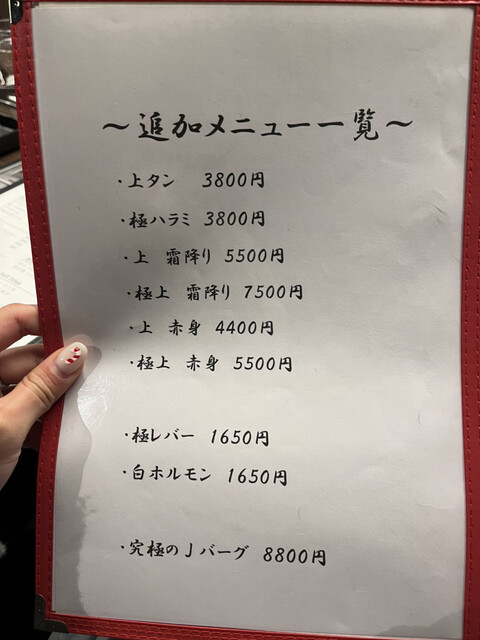 ～追加メニュー一覧～
・上タン 3800円
・極ハラミ 3800円
・上 霜降り 5500円
・極上 霜降り 7500円
・上 赤身 4400円
・極上 赤身 5500円
・極レバー 1650円
・白ホルモン 1650円
・究極のJバーグ 8800円